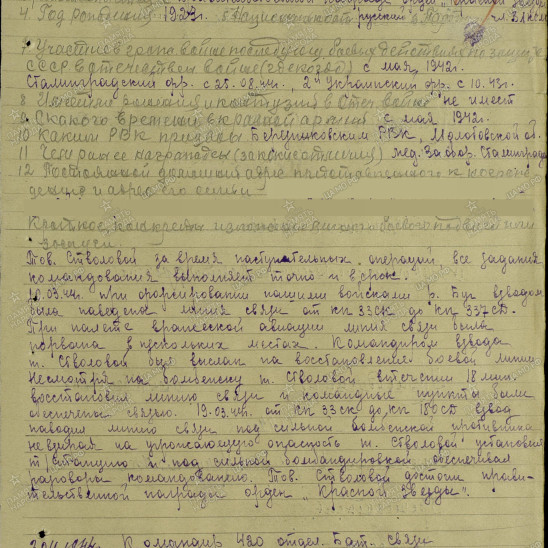 4. Год рождения 1923г. 5 Национальность русский 6 Парт. чл. ВЛКСМ
7 Участие в гражд. войне, последующих боевых действиях по защите
СССР в отечествен войне (где когда) с мая 1942г.
Сталинградский фр. с 25.08.42г., 2й Украинский фр. с 10.43г.
8 Имеет ли ранения и контузии в Отеч. войне не имеет
9. С какого времени в красной армии с мая 1942г.
10 Каким РВК призван Березниковским РВК, Молотовской об.
11 Чем ранее награжден (за какие отличия) мед. За обор. Сталинграда
12 Постоянный домашний адрес представляемого к
и адрес его семьи
Краткое, конкретн изложение личного боевого подвига или
заслуги.
Тов. Стволовой за время наступательных операций все задания
командования выполняет точно и в срок.
10.03.44г. при форсировании нашими войсками р. Буг взводом
была наведена линия связи от кп 33СК до кп 337СД.
При налете вражеской авиации линия связи была
порвана в нескольких местах. Командиром взвода
т. Стволовой был выслан на восстановление боевой линии
Несмотря на бомбежку т. Стволовой в течении 18 мин.
восстановил линию связи и командные пункты были
обеспечены связью. 19.03.44г. от кп 33СК до кп 180СД взвод
наводил линию связи под сильной бомбежкой противника
не взирая на угрожающую опасность т. Стволовой установил
т/станцию и под сильной бомбардировкой обеспечивал
разговоры командованию. Тов. Стволовой достоин прави-
тельственной награды орден „Красной Звезды".
Командир 420 отдел. Бат. связи